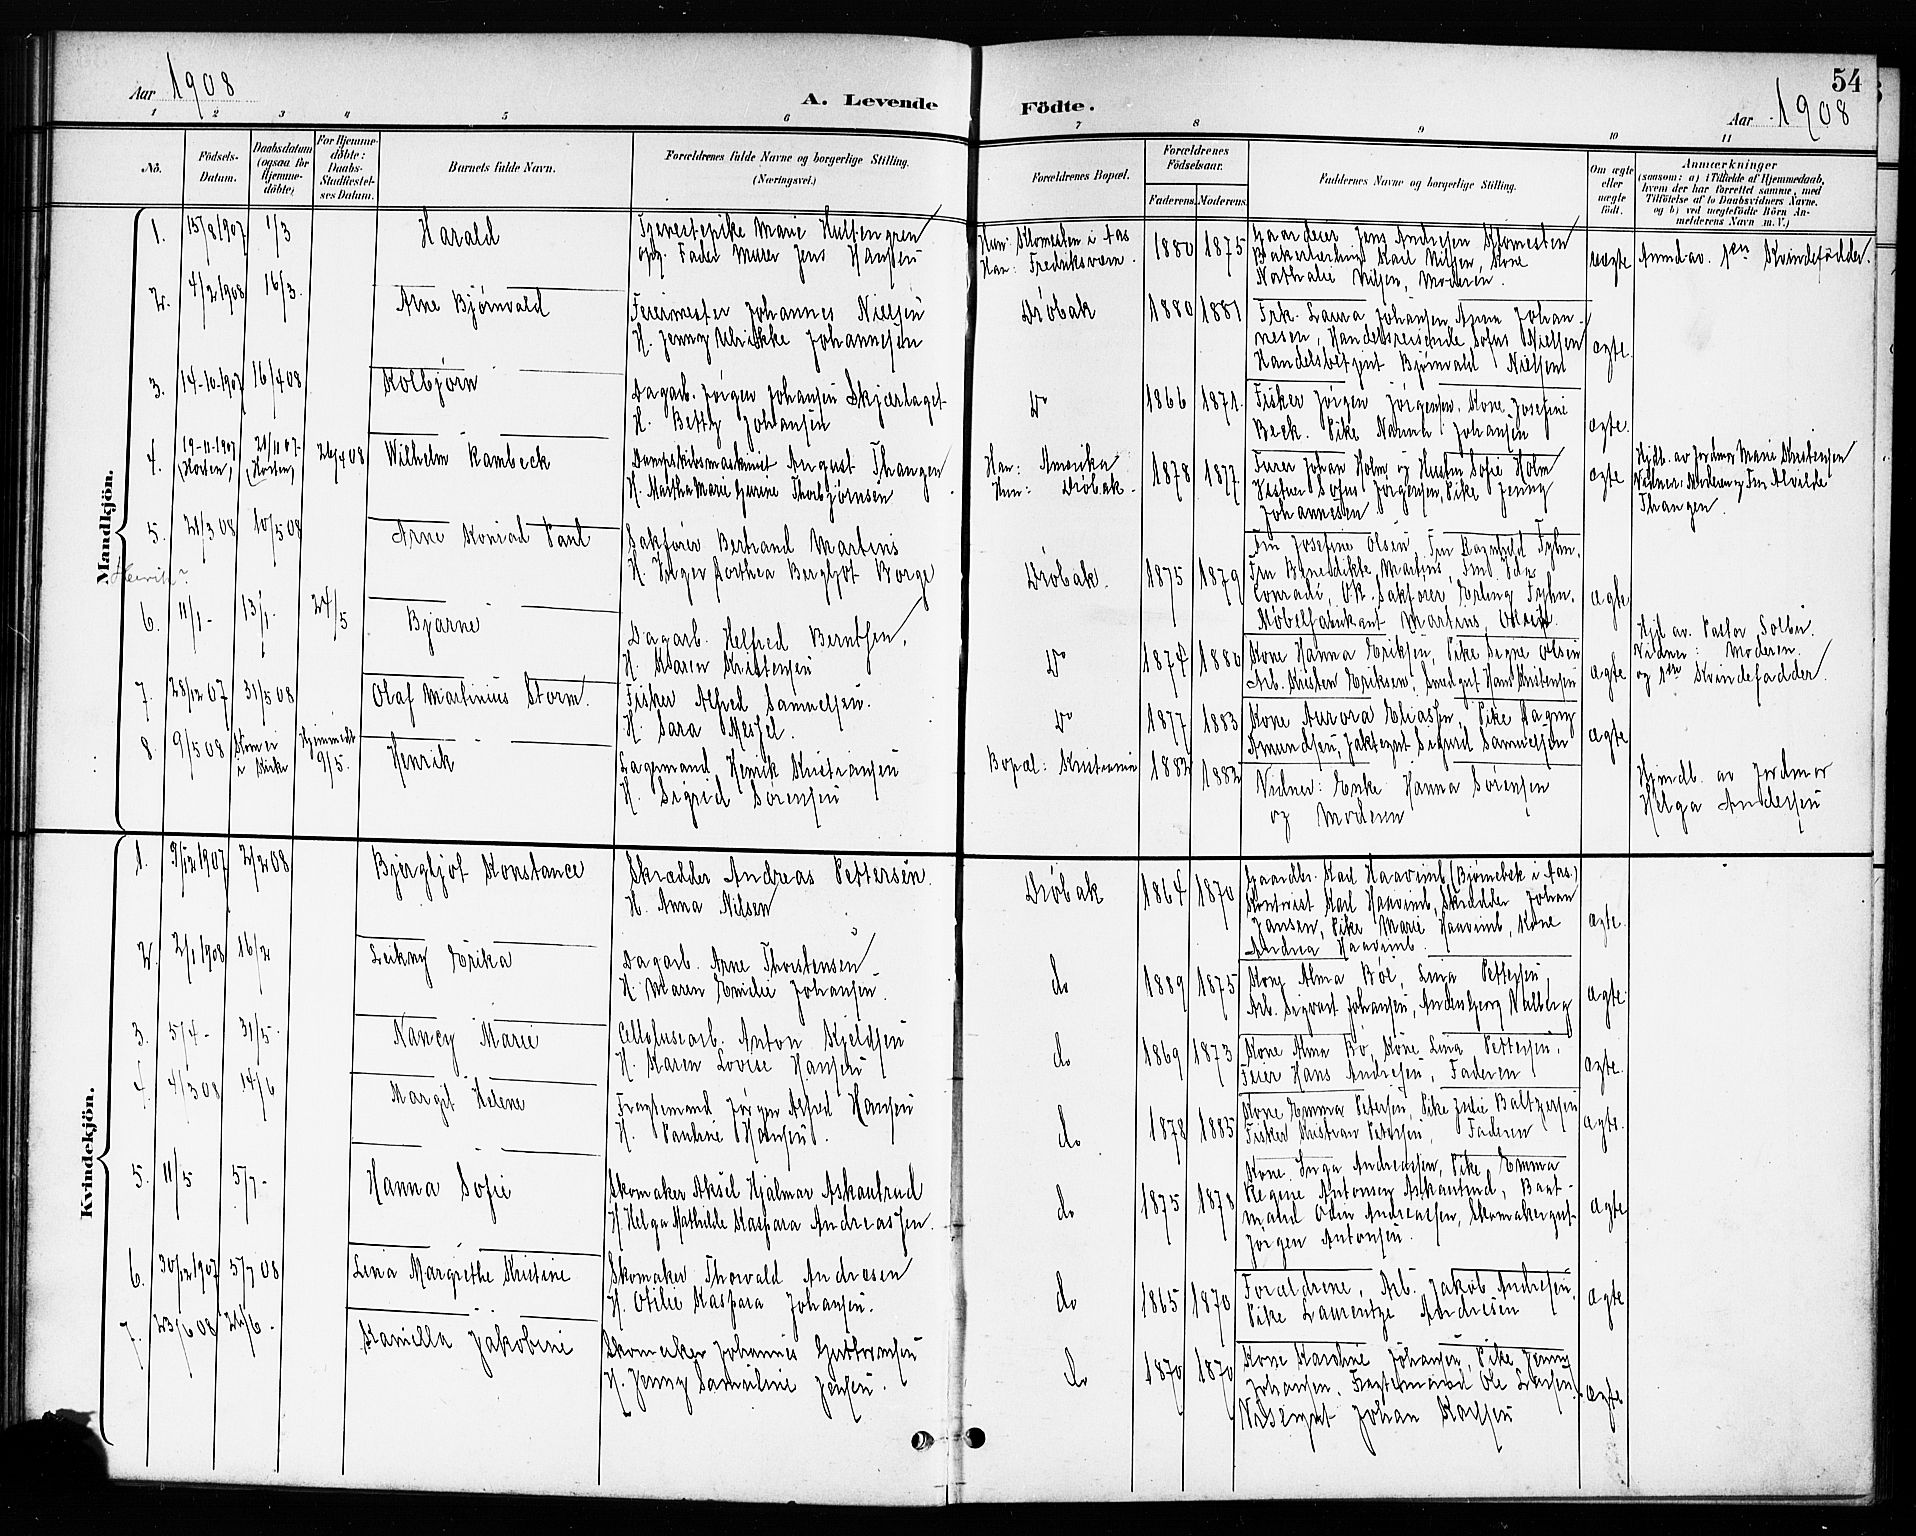 54
Aar 1908
A. Levende Födte.
Aar 1908
1 2 3 4 5 6 7 8 9 10 11
No.
Födsels-Datum.
Daabsdatum (ogsaa for Hjemme-döbte;
For Hjemme-döbte: Daabs-Stadfæstel-ses Datum.
Barnets fulde Navn.
Forældrenes fulde Navne og borgerlige Stilling. (Næringsvei.)
Forældrenes Bopæl.
Forældrenes Födselsaar.
Faderens. Moderens.
Faddernes Navne og borgerlige Stilling.
Om ægte eller uægte födt.
Anmærkninger
(saasom: a) i Tilfælde af Hjemmedaab, hvem der har forrettet samme, med Tilföielse af to Daabsvidners Navne. og b) ved uegtefödte Börn An-melderens Navn m.V.)
Mandkjön.
1. 15/8 1907 1/3 Harald
Tjenestepike Marie Hultengren
opg. Fader Murer Jens Hansen
Hun: Skomesten i Aas
Han: Fredriksværn.
1880 1875
Gaardeier Jens Andresen Skomesten
Karl Nilsen, Kone
Nathalie Nilsen, Moderen.
uægte
Anmd. av. 1ste Kvindefadder.
2. 4/2 1908 16/3. Arne Bjørnvald
Feiermester Johannes Nielsen
H. Jenny Ulrikke Johannesen
Drøbak 1880 1881
Frk. Laura Johansen, Anna Johan-
nesen, Handelsreisende Sofus Nielsen
Handelsbetjent Bjørnvald Nielsen
ægte.
3. 14-10-1907 16/4 08 Kolbjørn
Dagarb. Jørgen Johansen Skjærlaget
H. Betty Johansen
Do 1866 1871.
Fisker Jørgen Jørgensen. Kone Josefine
Beck. Pike Nanna Johansen
ægte.
4. 19-11-1907 (Horten) 21/11 07. (Horten) 26/4 08 Wilhelm Rambeck
Dampskibsmaskinist August Thangen
H. Martha Marie Gurine Thorbjørnsen
Han: Amerika
Hun: Drøbak.
1878 1877
Furer Johan Holm og Hustru Sofie Holm
Sofus Jørgensen, Pike Jenny
Johannesen
ægte
Hjdb. av Jordmor Marie Kristensen
Vidner: Moderen og Fru Alvilde
Thangen.
5. 21/3 08 10/5 08 Arne Konrad Paul
Sakfører Bertrand Martens
H. Inger Dorthea Bergljot Borge
Drøbak. 1875 1879
Fru Josefine Olsen, Fru Ragnhild Tyhn.
Fru Benedikte Martens, Frk. Ida
Conradi, OR. Sakfører Erling Tyhn.
Møbelfabrikant Martens,
ægte
Henrik?
6. 11/1 - 13/1. 24/5 Bjarne
Dagarb. Helfred Berntsen.
H. Karen Kristensen
Do 1874 1880
Kone Hanna Eriksen, Pike Signe Olsen
Arb. Kristen Eriksen, Smedgut Hans Kristensen
ægte
Hjd. av. Pastor Solberg.
Vidner: Moderen.
og 1ste Kvindefadder.
7. 28/12 07 31/5 08 Olaf Martinius Storm.
Fisker Alfred Samuelsen.
H. Sara Messel.
Do 1877 1883
Kone Aurora Eliassen, Pike Dagny
Amundsen, Jaktegut Sigurd Samuelsen
ægte
8. 9/5 08 Kom ei i Kirke Hjemmedb. 9/5. Henrik
Lagermand Henrik Kristiansen
H. Sigrid Sørensen
Bopæl: Kristiania 1882 1882
Vidner: Enke Hanna Sørensen
og Moderen
Hjmdb. av Jordmor
Helga Andersen
Kvindekjön.
1. 9/12 1907 2/2 08 Bjergljot Konstance
Skrædder Andreas Pettersen.
H. Anna Nilsen
Drøbak 1864 1870
Gaardbr. Karl Haavimb (Bjørnebek i Aas.)
Kontorist Karl Haavimb, Skrædder Johan
Jansen, Pike Marie Haavimb, Kone
Andrea Haavimb.
ægte.
2. 2/1 1908 16/2 Leikny Erika
Dagarb. Arne Thorstensen
H. Maren Emilie Johansen.
do 1889 1875
Kone Alma Bøe, Lina Pettersen,
Arb. Sigvart Johansen,
ægte.
3. 5/4 - 31/5. Nancy Marie
Cellulusearb. Anton Kjeldsen
H. Karen Lovise Hansen
do 1869 1873
Kone Alma Bø, Kone Lina Pettersen,
Feier Hans Andresen, Faderen
ægte.
4. 4/3 08 14/6 Margit Helene
Fragtemand Jørgen Alfred Hansen
H. Pauline Hansen.
do 1878 1885
Kone Emma Petersen, Pike Julie Baltzersen
Fisker Kristian Petersen, Faderen
ægte.
5. 11/5 5/7 - Hanna Sofie
Skomaker Aksel Hjalmar Askautrud
H. Helga Mathilde Kaspara Andreassen.
do 1875 1878
Kone Inga Andreassen, Pike Emma
Regine Antonsen Askautrud, Baat-
mand Odin Andreassen, Skomakergut
Jørgen Antonsen.
ægte
6. 30/12 1907 5/7 08 Lina Margrethe Kristine
Skomaker Thorvald Andresen
H. Otilie Kaspara Johansen.
do 1865 1870
Forældrene, Arb. Jakob Andresen,
Pike Laurentze Andresen
ægte
7. 23/6 08 24/6. Kamella Jakobine
Skomaker Johannes Guttormsen
H. Jenny Samuline Jensen.
do 1870 1870
Kone Karoline Johansen, Pike Jenny
Johansen. Fragtemand Ole Larsen,
Visergut Johan Karlsen
ægte